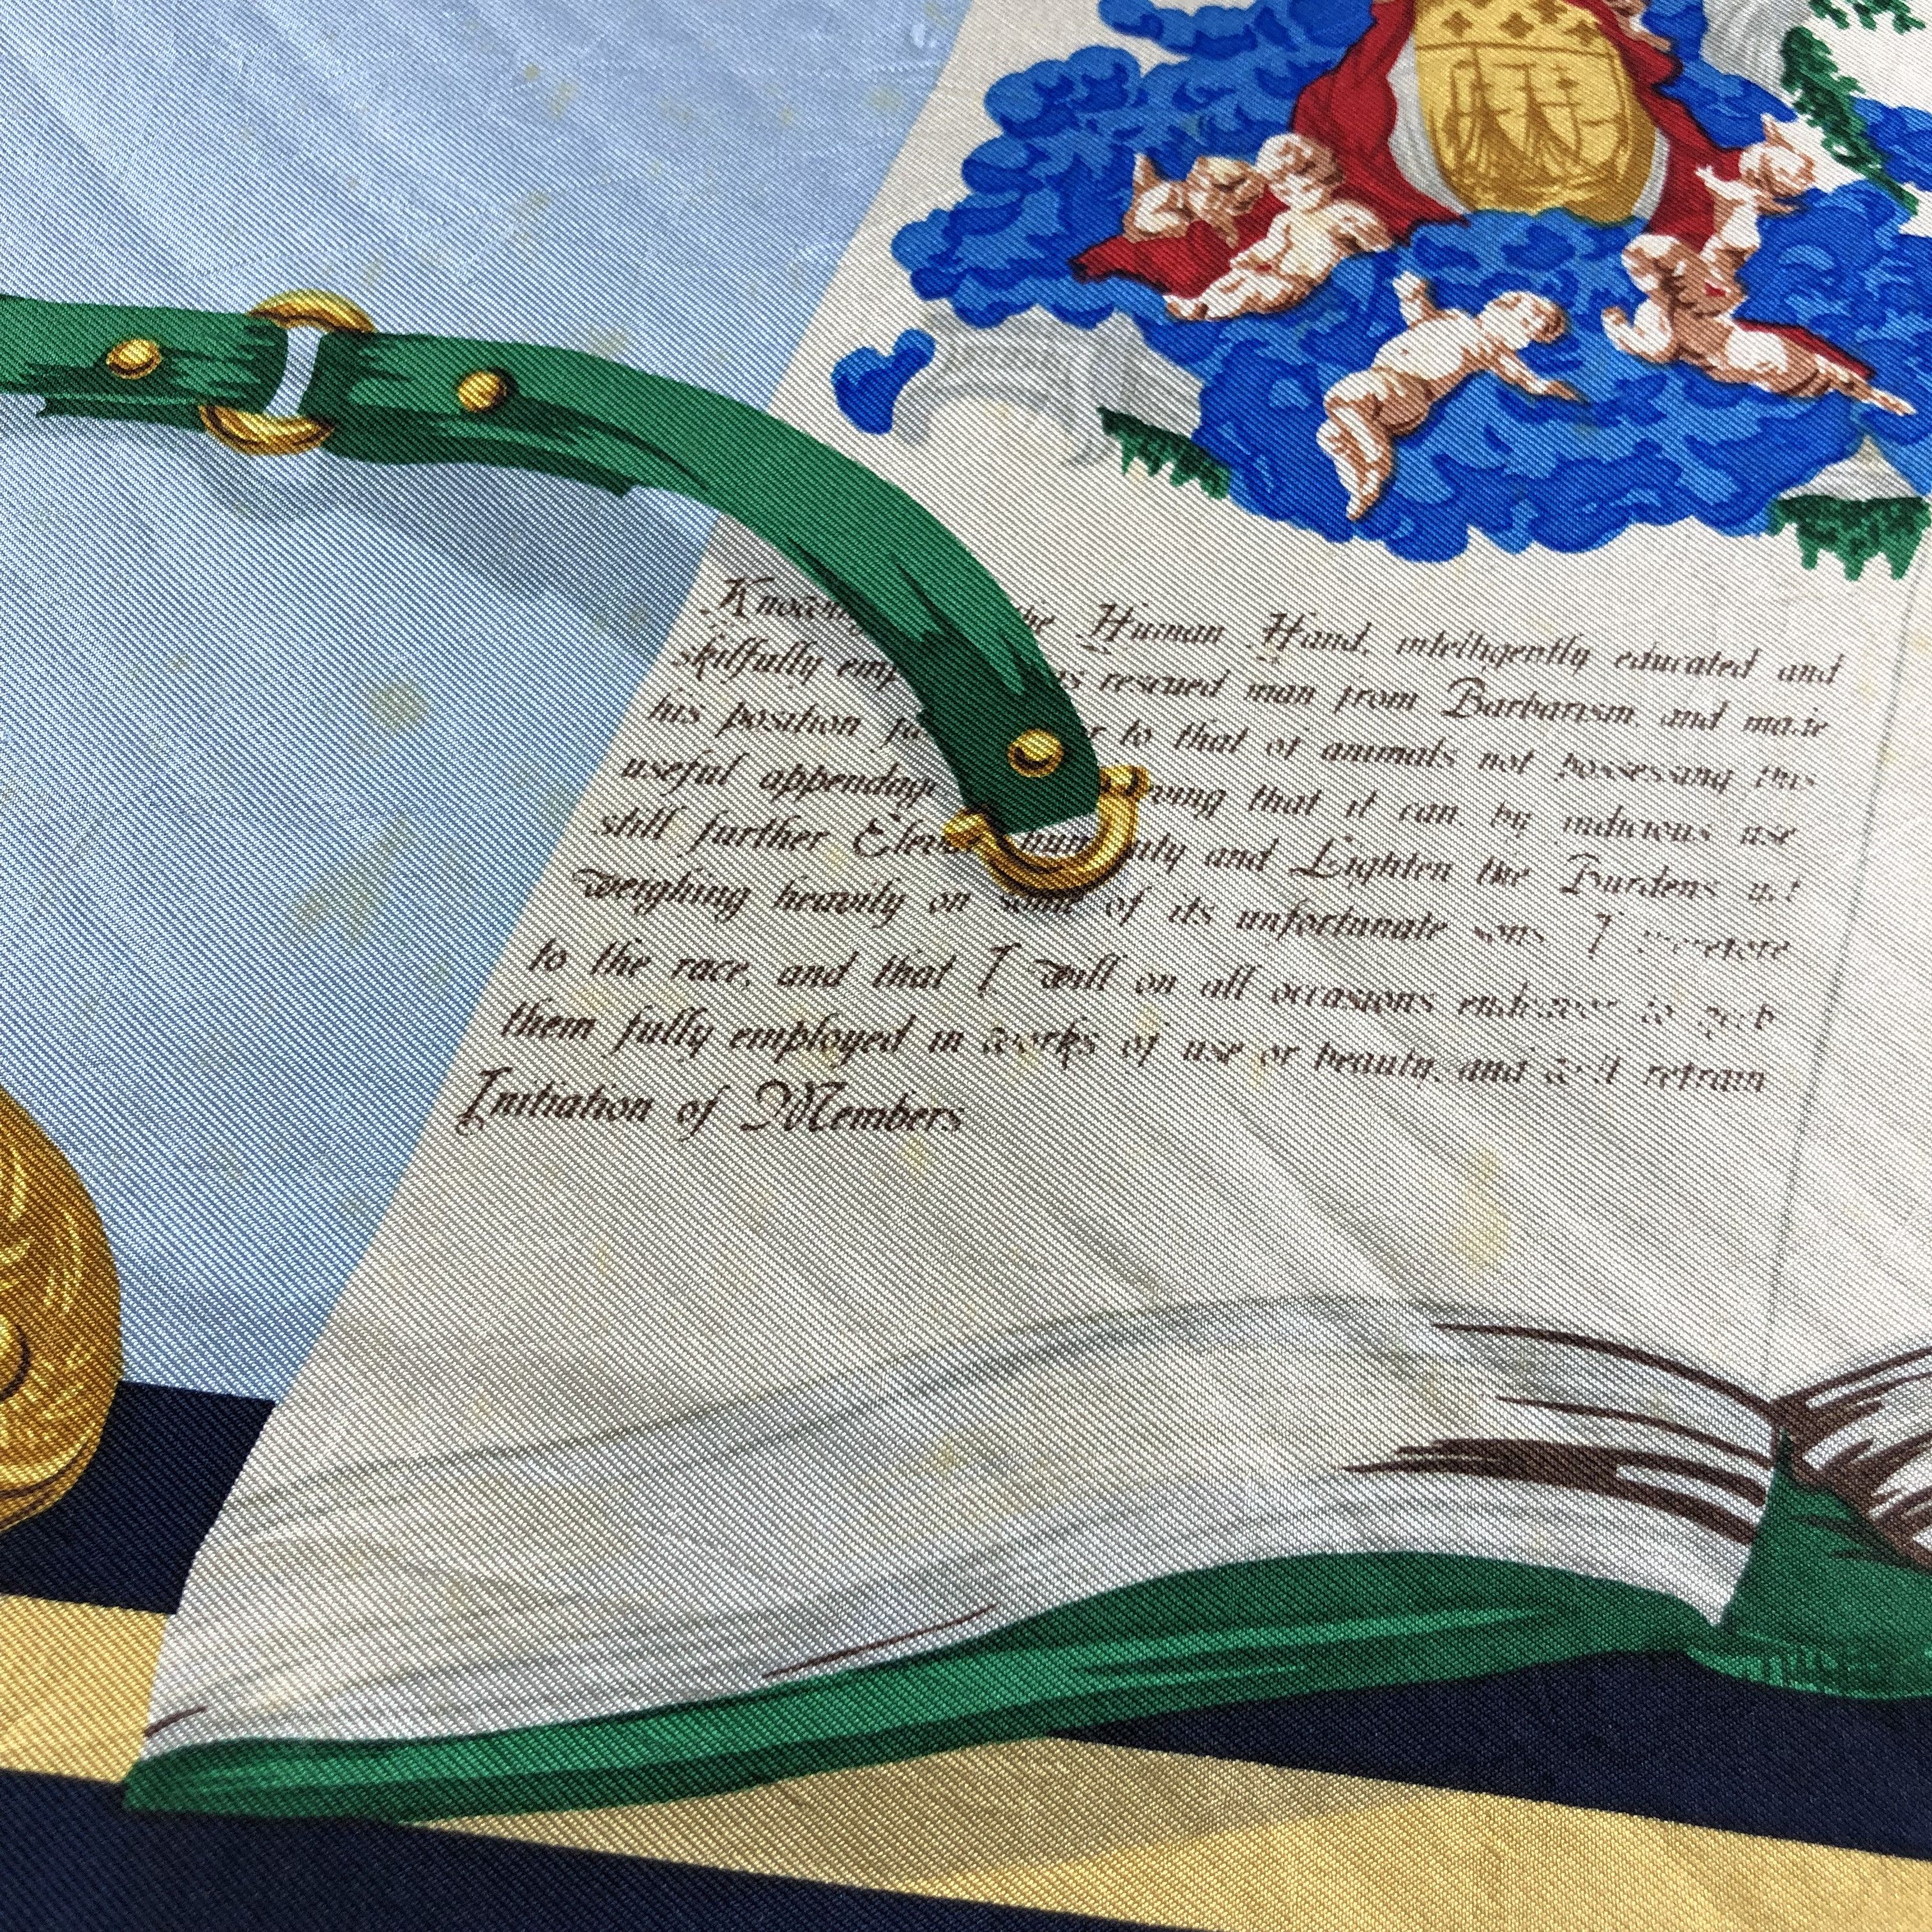 Knowing the Human Hand, intelligently educated and
skilfully emp rescued man from Barbarism, and made
his position fa r to that of animals not possessing this
useful appendag ving that it can by judicious use
still further Eleva mun ity and Lighten the Burdens
weighing heavily on some of its unfortunate sons I therefore
to the race, and that I will on all occasions endeavor to
them fully employed in works of use or beauty, and will refrain
Initiation of Members